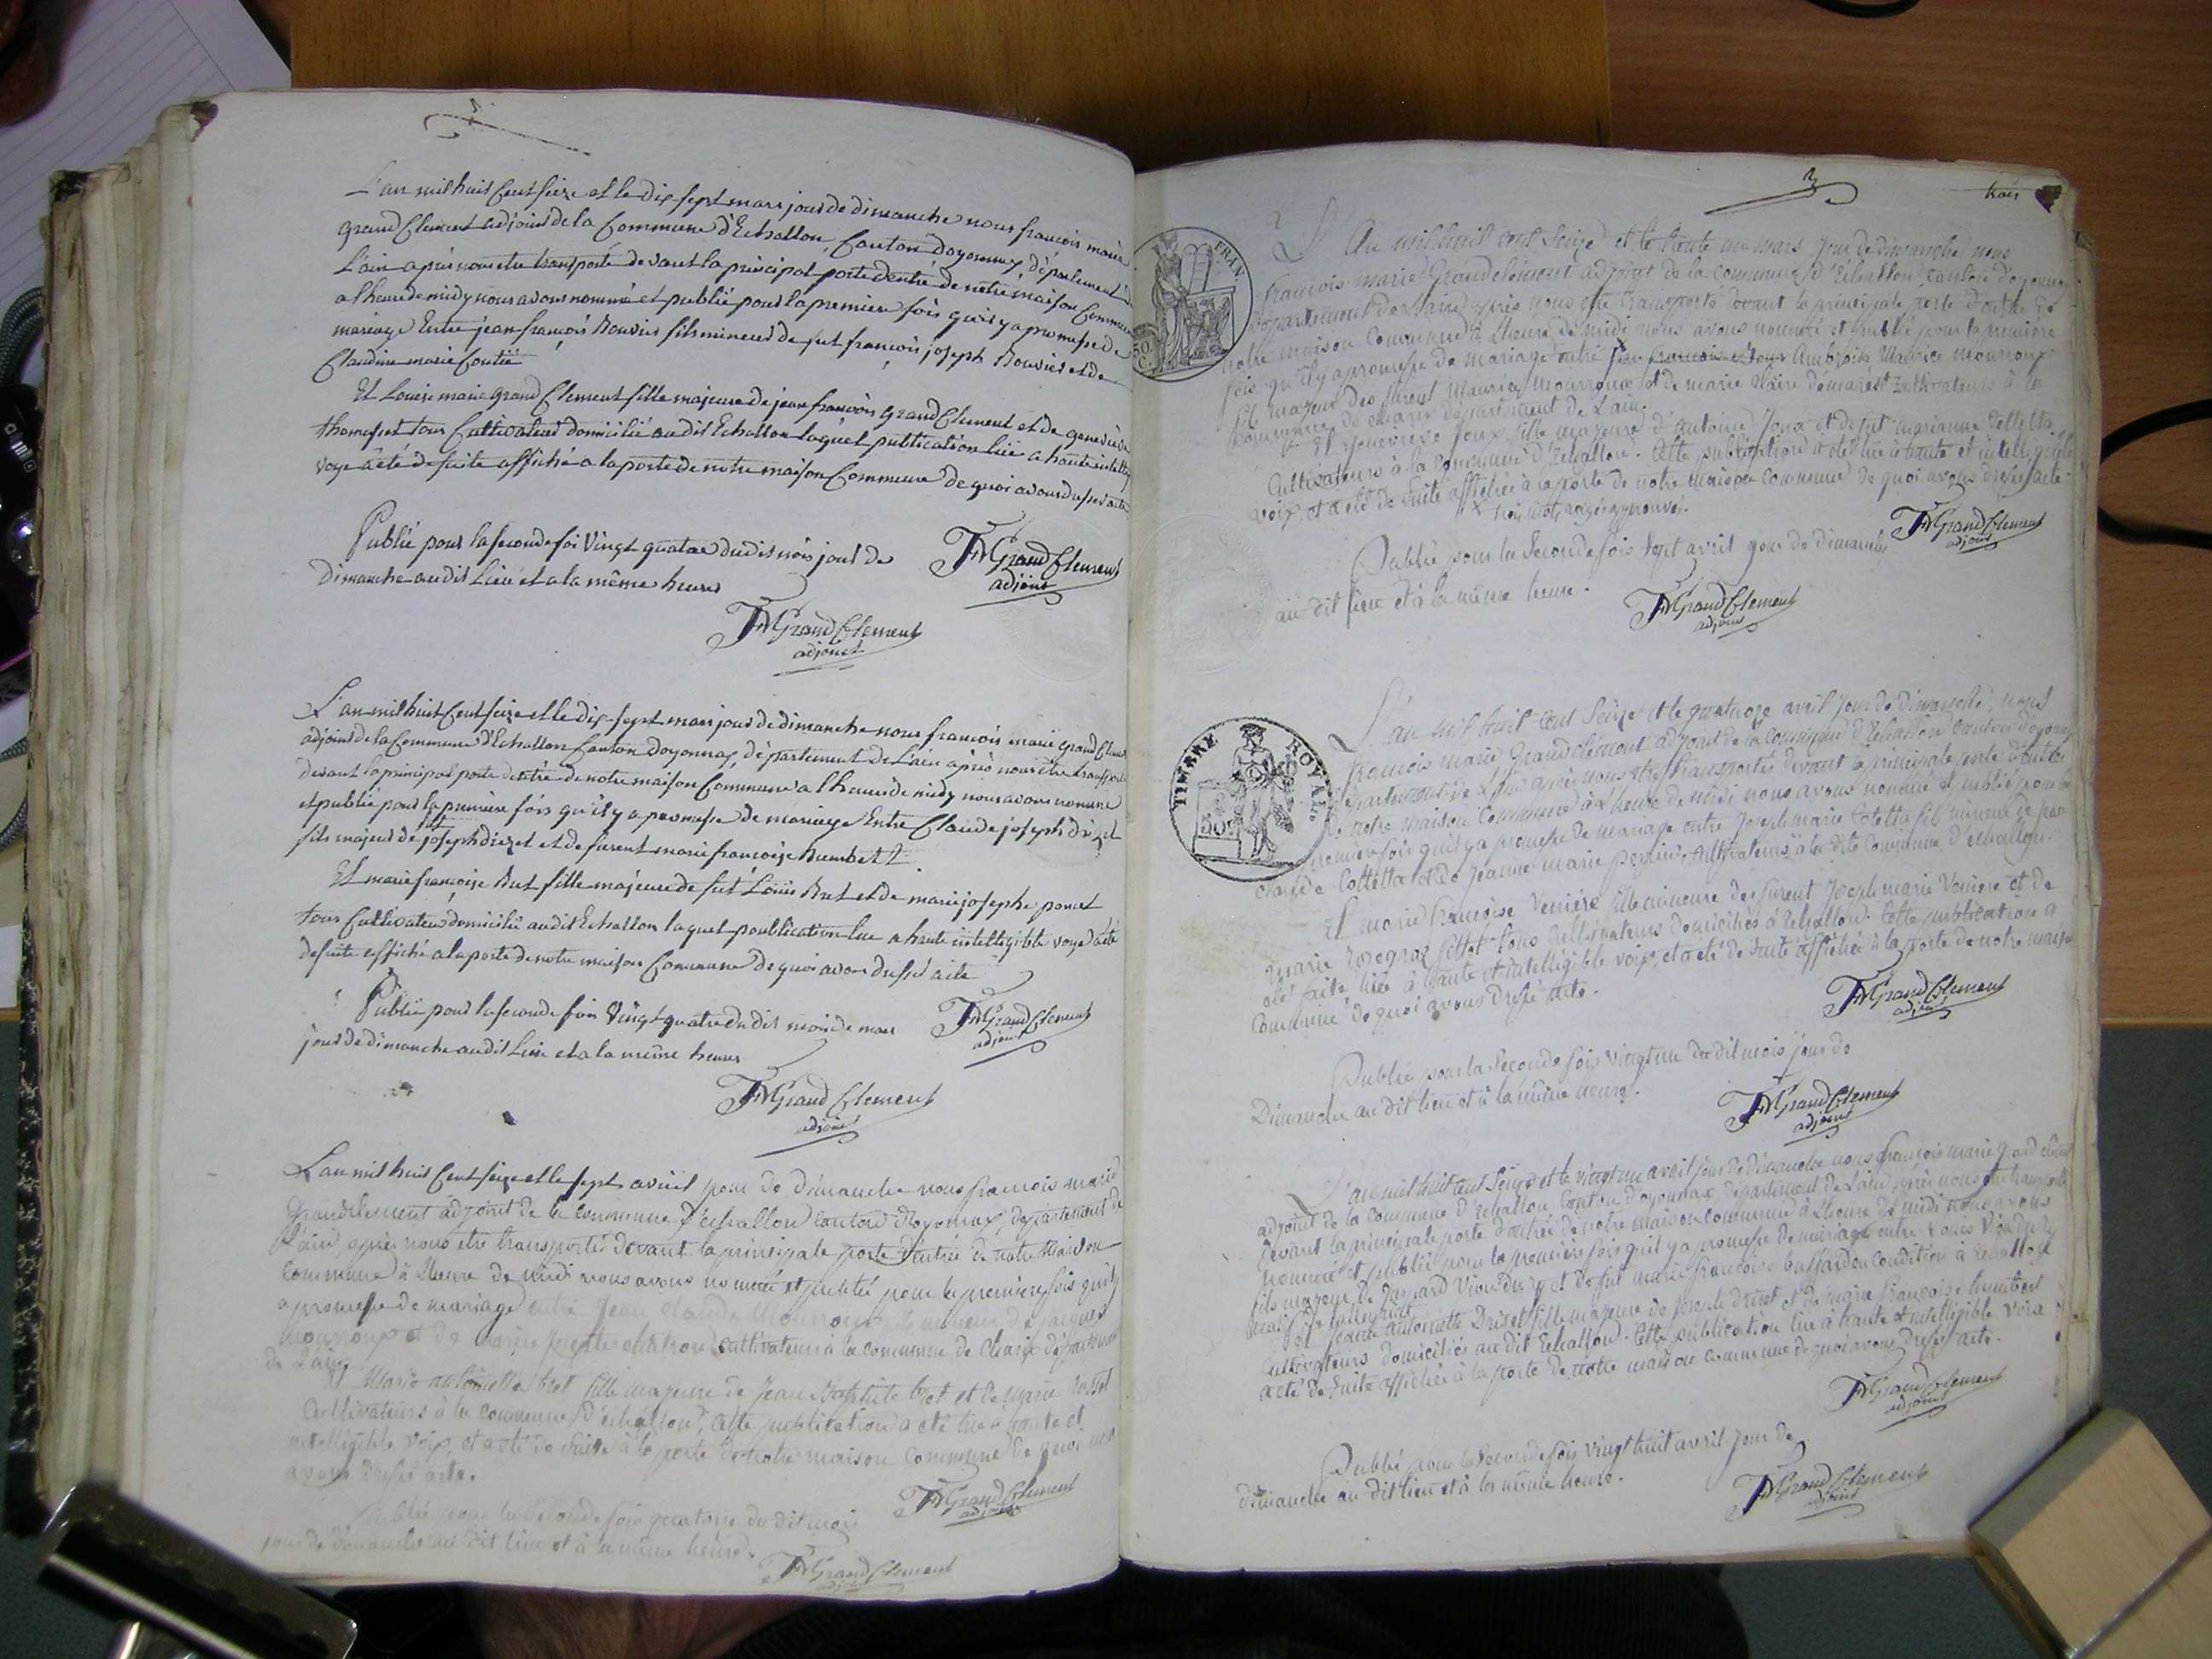 L'an mil huit Cent seize et le dix sept mars jour de dimanche nous francois marie
grand Clement adjoint de la Commune d'Echallon, Canton d'oyonnax, département de
L'ain après nous etre transporté devant la principal porte dentré de notre maison Commune
a lheure de midy nous avons nommé et publié pour la premiere fois quil y a promesse de
mariage Entre jean françois Bouvier fils mineur de fut françois joseph Bouvier et de
Claudine marie
Et Louise marie grand Clement fille majeure de jean francois grand Clement et de genevieve
thomasset tous Cultivateurs domicilié au dit Echallon laquel publication lue a haute intelligible
voye a été de suite affiché a la porte de notre maison Commune de quoi avons dressé acte
Publié pour la seconde foi vingt quatre dudit mois jour de
dimanche au dit Lieu et a la même heure
FMGrand Clement
adjoint
FMGrand Clement
adjoint
L'an mil huit Cent seize et le dix-sept mars jour de dimanche nous francois marie grand Clement
adjoint de la Commune d'Echallon Canton doyonnax, département de L'ain après nous être transporté
devant la principal porte dentré de notre maison Commune a lheure de midy nous avons nommé
et publié pour la premiere fois qu'il y a promesse de mariage Entre Claude joseph drizet
fils majeur de fut joseph drizet et de furent marie francoise humbert
Et marie françoise Bret fille majeure de fut Louis Bret et de marie josephe poncet
tous Cultivateurs domicilié au dit Echallon laquel poublication lue a haute intelligible voye a été
de suite affiché a la porte de notre maison Commune de quoi avons dressé acte
Publié pour la seconde fois Vingt quatre du dit mois de mars
jour de dimanche au dit Lieu et a la même heure
FMGrand Clement
adjoint
FMGrand Clement
adjoint
L'an mil huit Cent seize et le sept avril jour de dimanche nous francois marie
Grandclement adjoint de la commune d'echallon canton d'Oyonnax, departement de
l'ain, après nous etre transportés devant la principale porte d'entrée de notre maison
commune à l'heure de midi nous avons nommé et publié pour la premiere fois qu'il y
a promesse de mariage entre Jean claude Mourroux fils mineur de jacques
mourroux et de marie josephe cultivateurs à la commune de Charix département
de L'ain.
Et Marie antoinette bret fille majeure de Jean Baptiste bret et de marie
Cultivateurs à la commune d'echallon, cette publication a été lue a haute et
intelligible voix, et a été de suite à la porte de notre maison commune de quoi nous
avons dressé acte.
FMGrand Clement
adjoint
Publié pour la seconde fois quatorze du dit mois
jour de dimanche au dit lieu et à la même heure.
FMGrand Clement
adjoint
3
trois
FRAN.
50 C.
L'An mil huit cent Seize et le trente un mars jour de dimanche nous
francois marie Grandclément adjoint de la commune d'Echallon, canton d'oyonnax
departement de l'ain après nous etre transporté devant la principale porte d'entrée de
notre maison commune à l'heure de midi nous avons nommé et publié pour la premiere
fois qu'il y a promesse de mariage entre Ambroise Maurice mourroux
fils majeur des furent Maurice Mourroux et de marie claire cultivateurs à la
commune de charix département de L'ain.
Et Genevieve Joux fille majeure d'antoine Joux et de fut marianne Colletta
Cultivateurs à la commune d'Echallon. Cette publication a été lue à haute et intelligible
voix, et a été de suite affichée à la porte de notre maison commune de quoi avons dressé acte
trois mots rayés approuvés.
FMGrand Clement
adjoint
Publié pour la Seconde fois sept avril jour de dimanche
au dit lieu et à la même heure.
FMGrand Clement
adjoint
TIMBRE ROYAL
50
L'an mil huit cent Seize et le quatorze avril jour de dimanche, nous
francois marie Grandclément adjoint de la commune d'Echallon Canton d'oyonnax
département de L'ain après nous etre transportés devant la principale porte d'entrée
de notre maison Commune à l'heure de midi nous avons nommé et publié pour la
premiere fois qu'il y a promesse de mariage entre Joseph marie Coletta fils mineur de
claude Collettat et de Jeanne marie Cultivateurs à la dite Commune d'echallon.
Et marie françoise Veniere fille mineure des furent Joseph marie Veniere et de
marie tous cultivateurs domiciliés à Echallon. Cette publication a
été faite lüe à haute et intelligible voix, et a été de suite affichée à la porte de notre maison
Commune de quoi avons dressé acte.
FMGrand Clement
adjoint
Publié pour la Seconde fois vingt un du dit mois jour de
Dimanche au dit lieu et à la même heure.
FMGrand Clement
adjoint
L'an mil huit cent Seize et le vingt un avril jour de dimanche nous francois marie grand clement
adjoint de la commune d'Echallon Canton d'oyonnax, departement de L'ain, après nous etre transporté
devant la principale porte d'entrée de notre maison commune à L'heure de midi nous avons
nommé et publié pour la premiere fois qu'il y a promesse de mariage entre Louis
fils majeur de Gaspard et de fut marie francoise en Condition à Echallon
Et Jeanne Antoinette Drizet fille majeure de Joseph drizet et de marie francoise humbert
Cultivateurs domiciliés au dit Echallon. Cette publication lue à haute et intelligible voix
a été de suite affichée à la porte de notre maison commune de quoi avons dressé acte.
FMGrand Clement
adjoint
Publié pour la Seconde fois vingt huit avril jour de
dimanche au dit lieu et à la même heure.
FMGrand Clement
adjoint